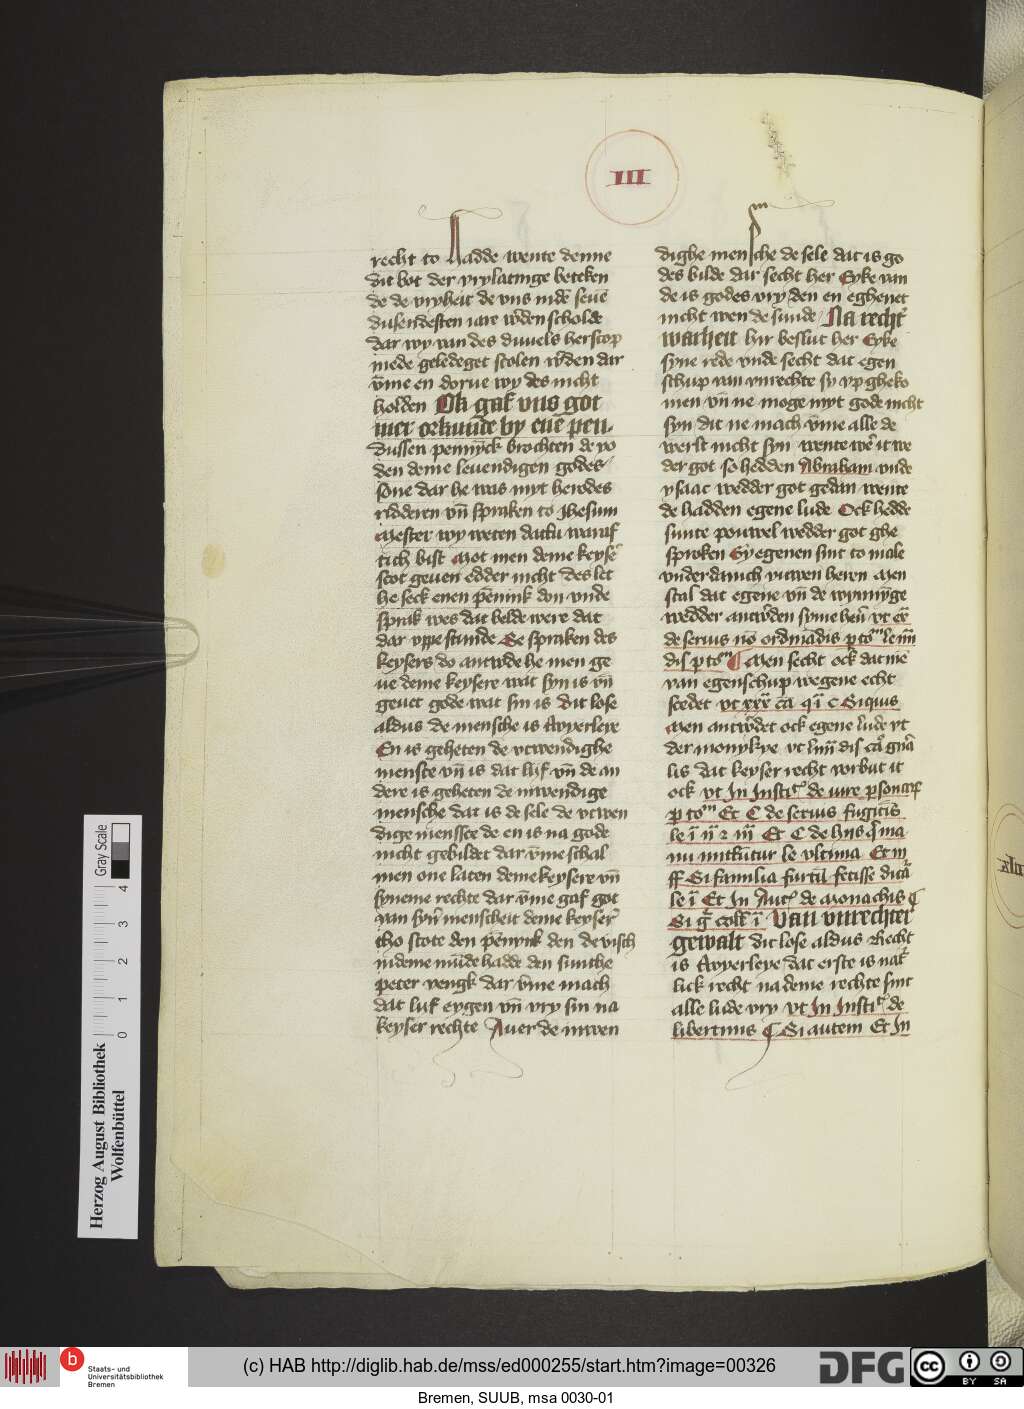 III
recht to hadde wente denne
dit bot der vrylatinge beteken
de de vryheit de vns inde seue
dusendesten iare w̄den scholde
dar wy van des duuels herscop
mede geledeget scolen w̄den dar
v̄me en dorue wy des nicht
holden Ok gaf vns got
mer orkunde by eme pen
dussen pennyck brochten de yo
den deme leuendigen godes
sone dar he was myt herodes
ridderen vn̄ spraken to Jhesum
Mester wy weten dattu waraf
tich bist Mot men deme keyser
scot geuen edder nicht des let
he seck enen pēnink don vnde
sprak wes dat belde were dat
dar vppe stunde Se spraken des
keysers do antw̄de he men ge
ue deme keysere wat syn is vn̄
geuet gode wat sin is dit lose
aldus de mensche is twyerleye
En is geheten de vtwendighe
mensche vn̄ is dat lijf vn̄ de an
dere is geheten de inwendige
mensche dat is de sele de vtwen
dige menssce de en is na gode
nicht gebildet dar v̄me schal
men one laten deme keysere vn̄
syneme rechte dar v̄me gaf got
van syn̄ menscheit deme keyser
tho scote den pēnynk den de visch
indeme mūde hadde den sunthe
peter vengk dar v̄me mach
dat lijf eygen vn̄ vry sin na
keyser rechte Auer de inwen
dighe mensche de sele dat is go
des bilde dar secht her Eyke van
de is godes vry den en eghenet
nicht wen de sunde Na recht
warheit hir beslut her Eyke
syne rede vnde secht dat egen
schup van vnrechte sy vp gheko
men vn̄ ne moge myt gode nicht
syn dit ne mach v̄me alle de
werlt nicht syn wente wer it we
der got so hedden Abraham vnde
ysaac wedder got gedan wente
de hadden egene lude Ock hedde
sunte pouwel wedder got ghe
sproken Gy egenen sint to male
vnderdanich vuwen heren Men
scal dat egene vn̄ de wynnyge
wedder antw̄den syme hern vt ex̄
de seruus nō ordinādis p totum le iiii
dis p totum ¶ Men secht ock dat me
van egenschup wegene echt
scedet vt xxix cā q̄ i c Si quis
Men antw̄det ock egene lude vt
der monykye vt liiii dis ca gna
lis dat keyser recht vorbut it
ock vt In Insti de iure personarum
p totum Et C de seruus fugitiuis
le i ii 2 iii Et C de hns q̄ ma
nu mittūtur le vltima Et in
ff Si familia furtū fecisse dicā
le i Et In Auct de monachis ¶
Si q̄ coll i Van vnrechter
gewalt dit lose aldus Recht
is twyerleye dat erste is nat
lick recht na deme rechte sint
alle lude vry vt In Insti de
libertinis ¶ Si autem Et In
Herzog August Bibliothek
Wolfenbüttel
0 1 2 3 4
Gray Scale
b
Staats- und
Universitätsbibliothek
Bremen
(c) HAB http://diglib.hab.de/mss/ed000255/start.htm?image=00326
DFG
cc
BY SA
Bremen, SUUB, msa 0030-01